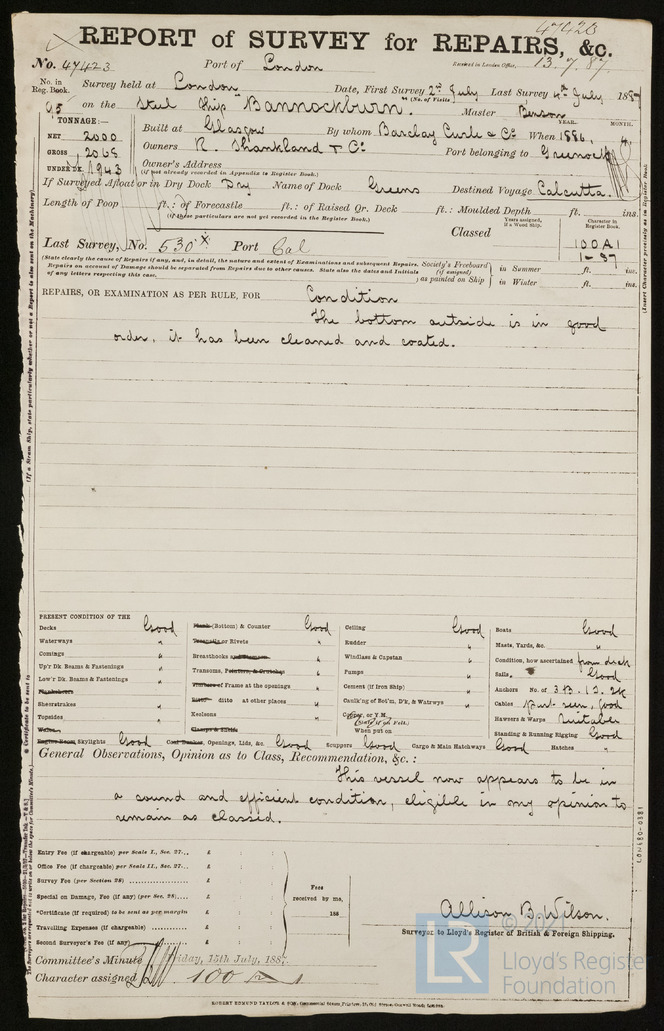 47423
REPORT of SURVEY for REPAIRS, &c.
No. 47423 Port of London Received in London Office, 13.7.87
No. in Reg. Book. Survey held at London Date, First Survey 2nd July Last Survey 4th July 1887
95 on the Steel Ship "Bannockburn." (No. of Visits) Master Benson
TONNAGE:—
NET 2000
GROSS 2068
UNDER DK. 1943
Built at Glasgow By whom Barclay Curle & Co When 1886, 4
YEAR. MONTH.
Owners R. Shankland & Co Port belonging to Greenock
Owner's Address
(if not already recorded in Appendix to Register Book.)
If Surveyed Afloat or in Dry Dock Dry Name of Dock Greens Destined Voyage Calcutta.
Length of Poop ft.: of Forecastle ft.: of Raised Qr. Deck ft.: Moulded Depth ft. ins.
(if these particulars are not yet recorded in the Register Book.)
Classed
Years assigned, if a Wood Ship.
Character in Register Book.
100A1
1-87
Last Survey, No. 530 x Port Cal
(State clearly the cause of Repairs if any, and, in detail, the nature and extent of Examinations and subsequent Repairs. Repairs on account of Damage should be separated from Repairs due to other causes. State also the dates and Initials of any letters respecting this case.)
Society's Freeboard (if assigned) as painted on Ship
in Summer ft. ins.
in Winter ft. ins.
REPAIRS, OR EXAMINATION AS PER RULE, FOR Condition
The bottom outside is in good
order, it has been cleaned and coated.
PRESENT CONDITION OF THE
Decks Good
Waterways "
Comings "
Up'r Dk. Beams & Fastenings "
Low'r Dk. Beams & Fastenings "
Planksheers
Sheerstrakes "
Topsides "
Wales
Engine Room Skylights Good
Plank (Bottom) & Counter Good
Treenails or Rivets "
Breasthooks and Pointers "
Transoms, Pointers, & Crutches "
Timbers or Frames at the openings "
Ditto ditto at other places "
Keelsons "
Clamps & Shelfs
Coal Bunker, Openings, Lids, &c. Good
Ceiling Good
Rudder "
Windlass & Capstan "
Pumps "
Cement (if Iron Ship) "
Caulk'g of Bot'm, D'k, & Watrwys "
Copper, or Y.M.
(State if on Felt.)
When put on
Scuppers Good Cargo & Main Hatchways Good Hatches "
Boats Good
Masts, Yards, &c. "
Condition, how ascertained from deck
Sails Good
Anchors No. of 3B. 1S. 2K
Cables part seen, good
Hawsers & Warps Suitable
Standing & Running Rigging Good
General Observations, Opinion as to Class, Recommendation, &c.:
This vessel now appears to be in
a sound and efficient condition, eligible in my opinion to
remain as classed.
Entry Fee (if chargeable) per Scale I., Sec. 27... £ : :
Office Fee (if chargeable) per Scale II., Sec. 27... £ : :
Survey Fee (per Section 28) £ : :
Special on Damage, Fee (if any) (per Sec. 28)... £ : :
*Certificate (if required) to be sent as per margin £ : :
Travelling Expenses (if chargeable) £ : :
Second Surveyor's Fee (if any) £ : :
Fees received by me, 188
Allison B. Wilson.
Surveyor to Lloyd's Register of British & Foreign Shipping.
Committee's Minute Friday, 15th July, 1887.
Character assigned 100 A 1
ROBERT EDMUND TAYLOR & SON, Commercial Steam Printers, 19, Old Street, Goswell Road, London.
(If a Steam Ship, state particularly whether or not a Report is also sent on the Machinery)
LON480-0381
LR
© 2021
Lloyd's Register
Foundation